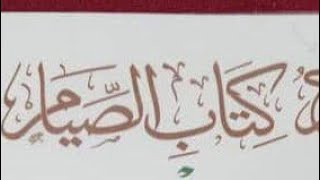 كِتَابِ الصِّيَامِ